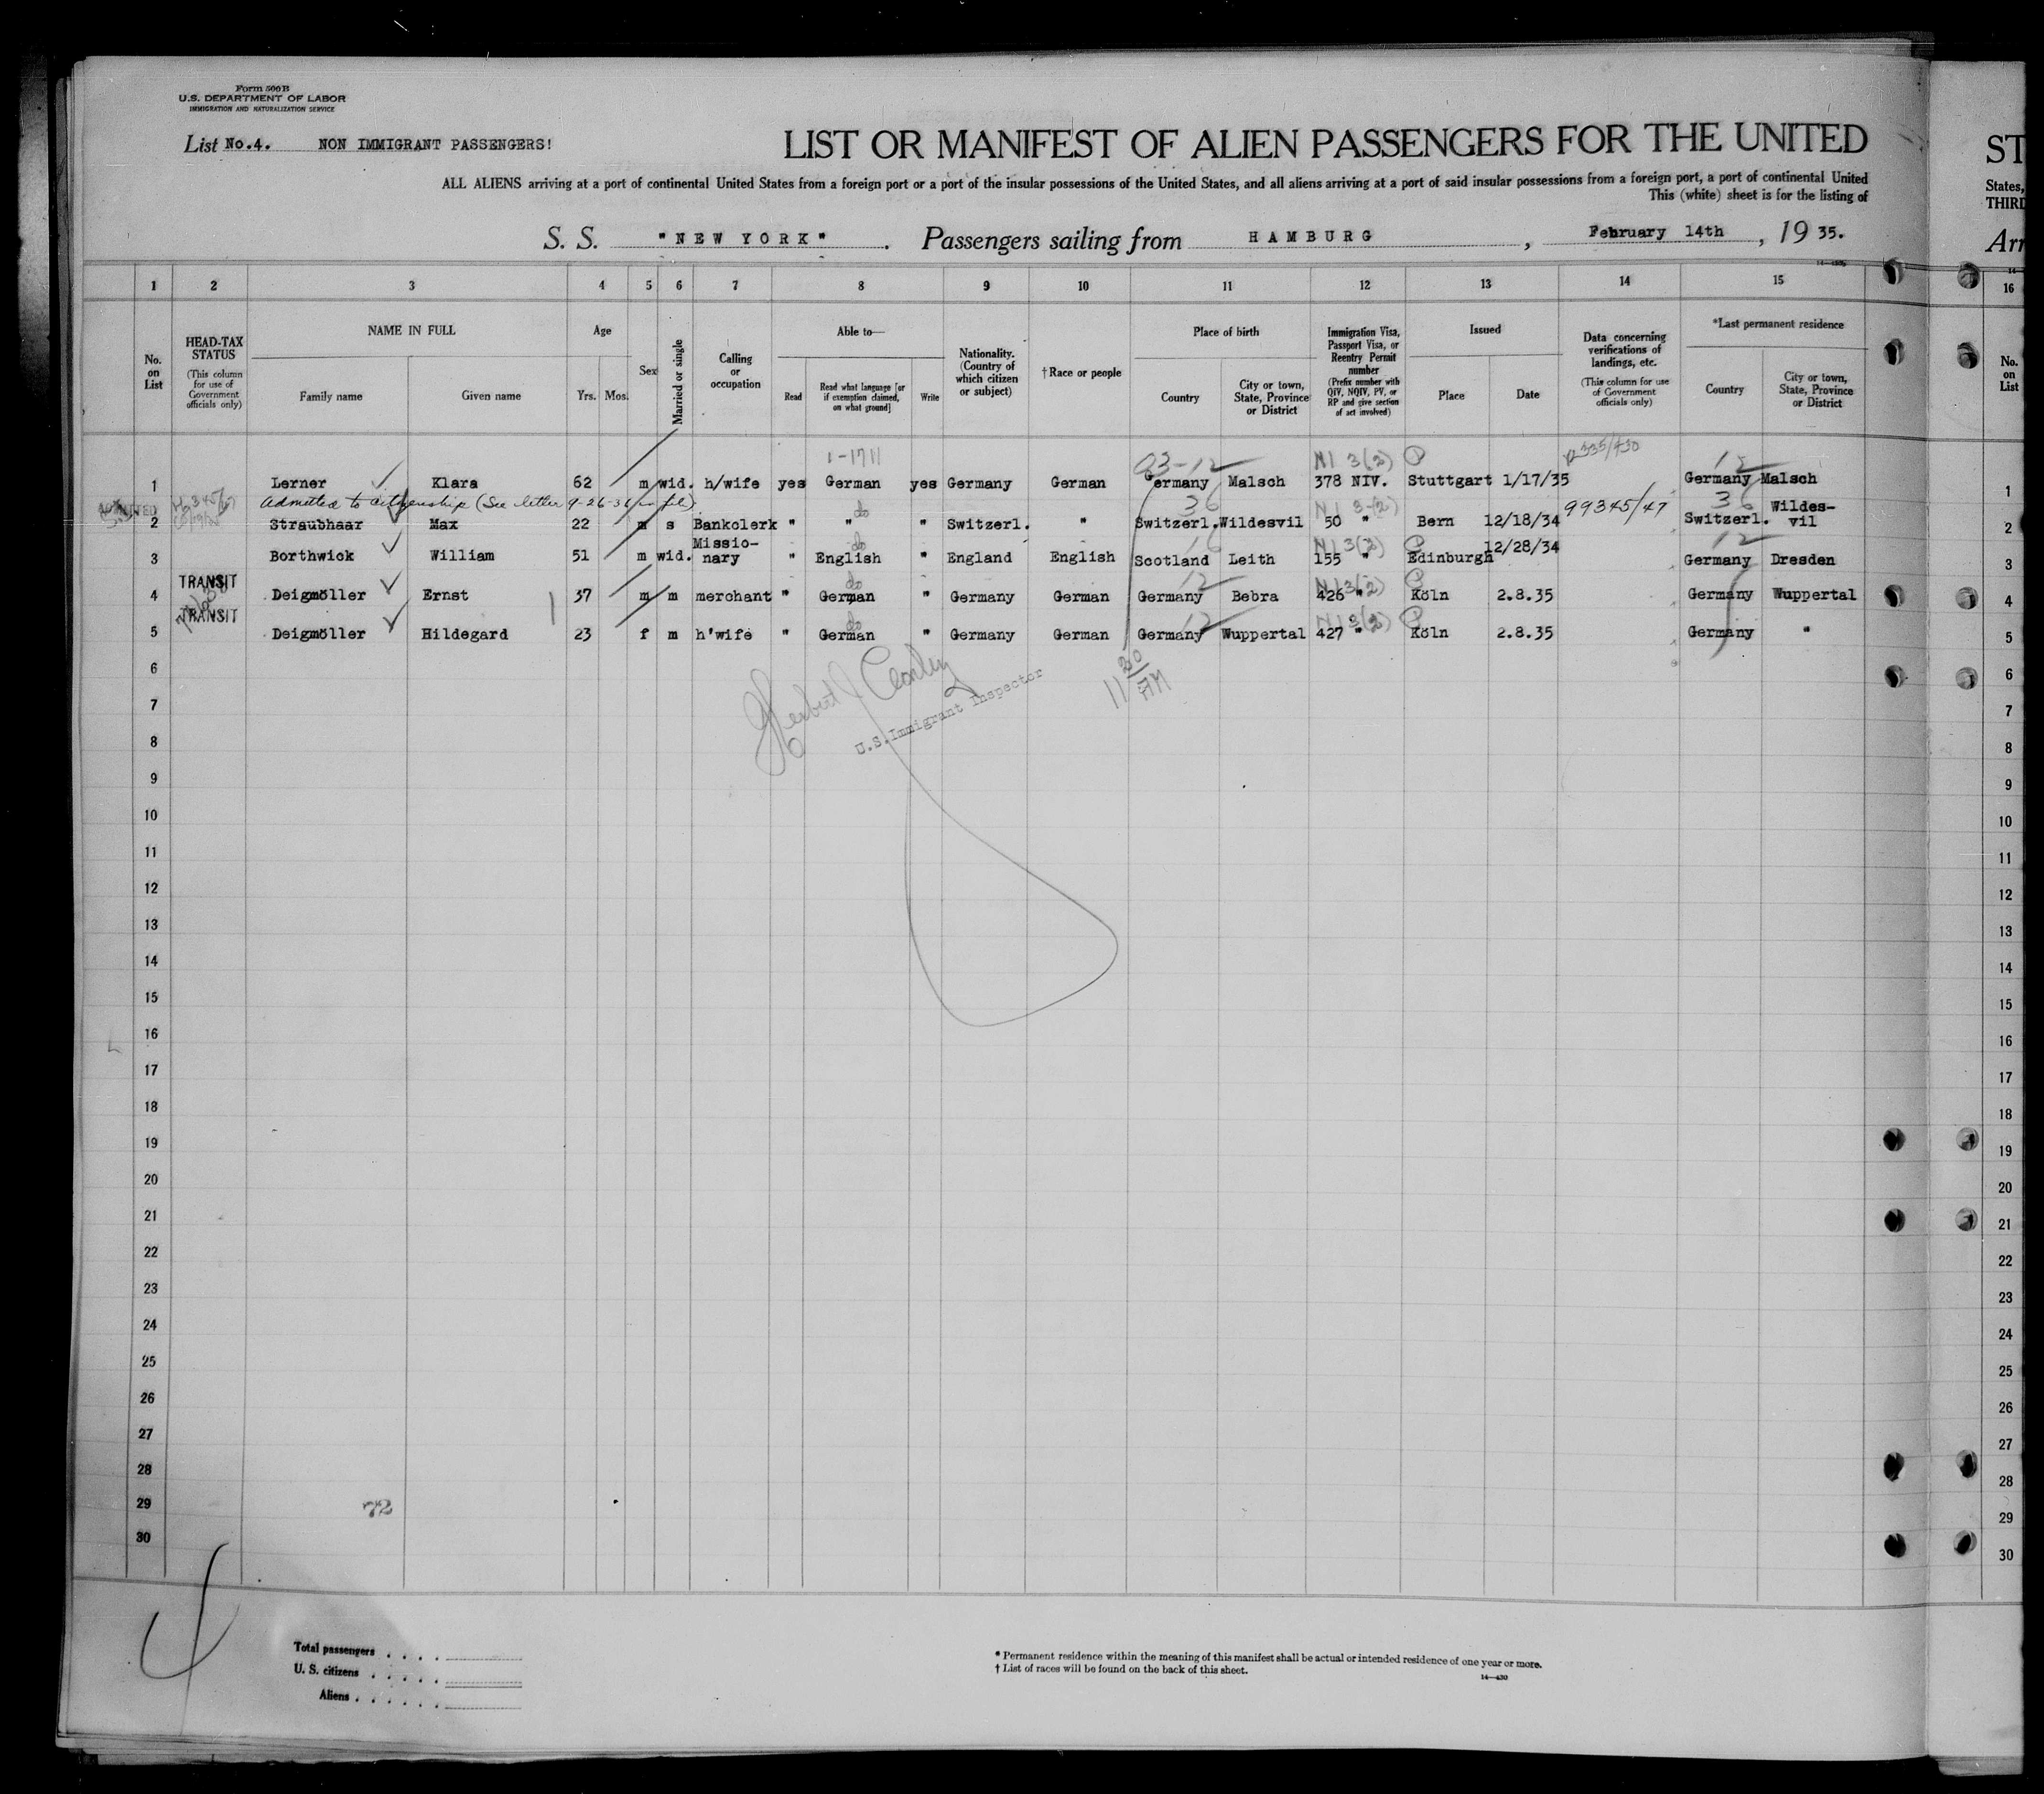 Form 500B
U.S. DEPARTMENT OF LABOR
IMMIGRATION AND NATURALIZATION SERVICE
List No.4. NON IMMIGRANT PASSENGERS!
LIST OR MANIFEST OF ALIEN PASSENGERS FOR THE UNITED
ALL ALIENS arriving at a port of continental United States from a foreign port or a port of the insular possessions of the United States, and all aliens arriving at a port of said insular possessions from a foreign port, a port of continental United
This (white) sheet is for the listing of
S. S. "NEW YORK". Passengers sailing from HAMBURG, February 14th, 19 35.
ST
States,
THIRD
Arr
1 2 3 4 5 6 7 8 9 10 11 12 13 14 15 16
No. on List
HEAD-TAX STATUS (This column for use of Government officials only)
NAME IN FULL
Family name Given name
Age
Yrs. Mos.
Sex
Married or single
Calling or occupation
Able to—
Read Read what language [or if exemption claimed, on what ground] Write
Nationality. (Country of which citizen or subject)
†Race or people
Place of birth
Country City or town, State, Province or District
Immigration Visa, Passport Visa, or Reentry Permit number (Prefix number with QIV, NQIV, PV, or RP and give section of act involved)
Issued
Place Date
Data concerning verifications of landings, etc. (This column for use of Government officials only)
*Last permanent residence
Country City or town, State, Province or District
No. on List
1-1711 N1 3(2) P
1 Lerner Klara 62 m wid. h/wife yes German yes Germany German Germany Malsch 378 NIV. Stuttgart 1/17/35 Germany Malsch 1
Admitted to citizenship (See letter 9-26-36 in file)
36 N1 3-(2) 99345/47 36
2 Straubhaar Max 22 m s Bankclerk " " " Switzerl. " Switzerl. Wildesvil 50 " Bern 12/18/34 Switzerl. Wildes-vil 2
3 Borthwick William 51 m wid. Missio-nary " English " England English Scotland Leith 155 " Edinburgh 12/28/34 Germany Dresden 3
TRANSIT
4 Deigmöller Ernst 37 m m merchant " German " Germany German Germany Bebra 426 " Köln 2.8.35 Germany Wuppertal 4
TRANSIT
5 Deigmöller Hildegard 23 f m h'wife " German " Germany German Germany Wuppertal 427 " Köln 2.8.35 Germany " 5
U.S. Immigrant Inspector
11 30/AM
6 6
7 7
8 8
9 9
10 10
11 11
12 12
13 13
14 14
15 15
16 16
17 17
18 18
19 19
20 20
21 21
22 22
23 23
24 24
25 25
26 26
27 27
28 28
29 29
30 30
72
Total passengers
U. S. citizens
Aliens
* Permanent residence within the meaning of this manifest shall be actual or intended residence of one year or more.
† List of races will be found on the back of this sheet.
14—430